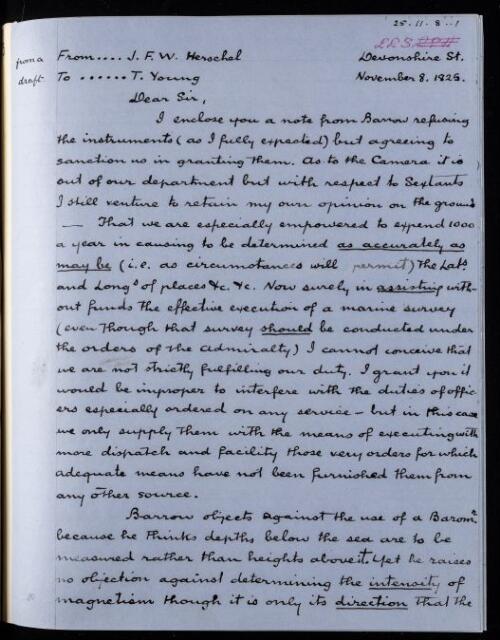 25.11.8..1
from a From.... J. F. W. Herschel Devonshire St.
draft. To ...... T. Young November 8. 1825.
Dear Sir,
I enclose you a note from Barrow refusing
the instruments (as I fully expected) but agreeing to
sanction us in granting them. As to the Camera it is
out of our department but with respect to Sextants
I still venture to retain my own opinion on the ground
— That we are especially empowered to expend 1000
a year in causing to be determined as accurately as
may be (i.e. as circumstances will permit) the Lats
and Longs of places &c. &c. Now surely in assisting with-
out funds the effective execution of a marine survey
(even though that survey should be conducted under
the orders of the Admiralty) I cannot conceive that
we are not strictly fulfilling our duty. I grant you it
would be improper to interfere with the duties of offic-
ers especially ordered on any service – but in this case
we only supply them with the means of executing with
more dispatch and facility those very orders for which
adequate means have not been furnished them from
any other source.
Barrow objects against the use of a Baromr.
because he thinks depths below the sea are to be
measured rather than heights above it. Yet he raises
no objection against determining the intensity of
magnetism though it is only its direction that the